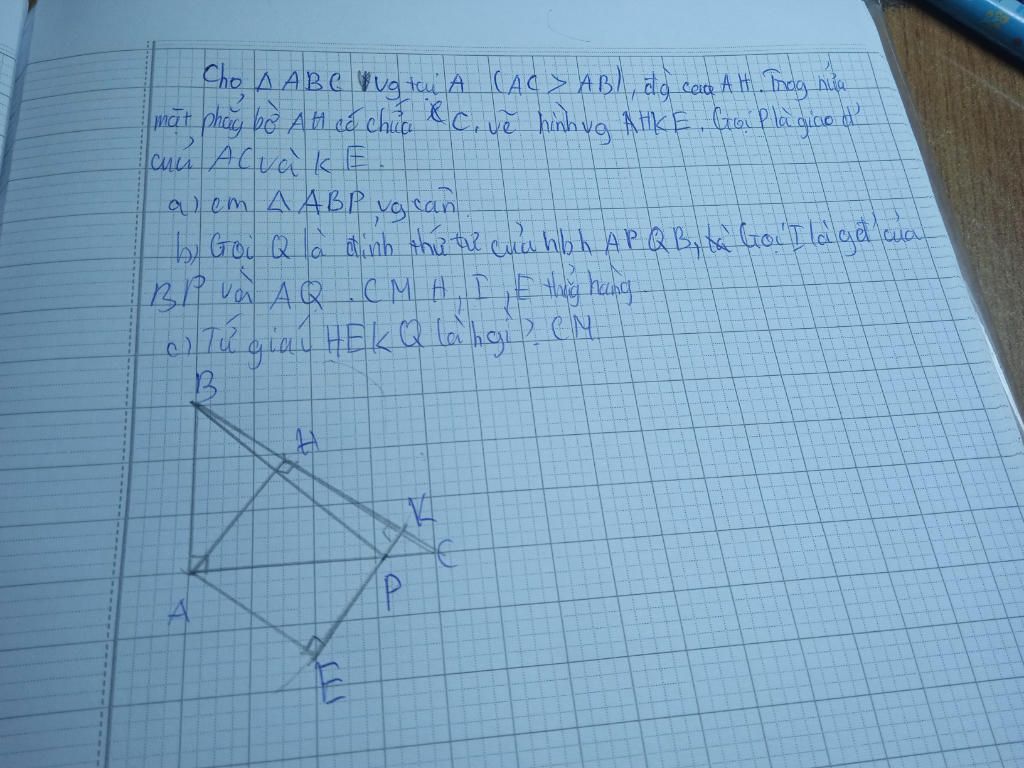 Cho Δ ABC vg tại A (AC > AB), đg cao AH. Trong nửa
mặt phẳng bờ AH có chứa C, vẽ hình vg AHKE. Gọi P là giao đ'
của AC và KE.
a) cm Δ ABP vg cân
b) Gọi Q là đỉnh thứ tư của hbh APQB, Gọi I là gđ' của
BP và AQ. CM H, I, E thẳng hàng
c) Tứ giác HEKQ là h gì? CM
B
H
K
C
P
A
E